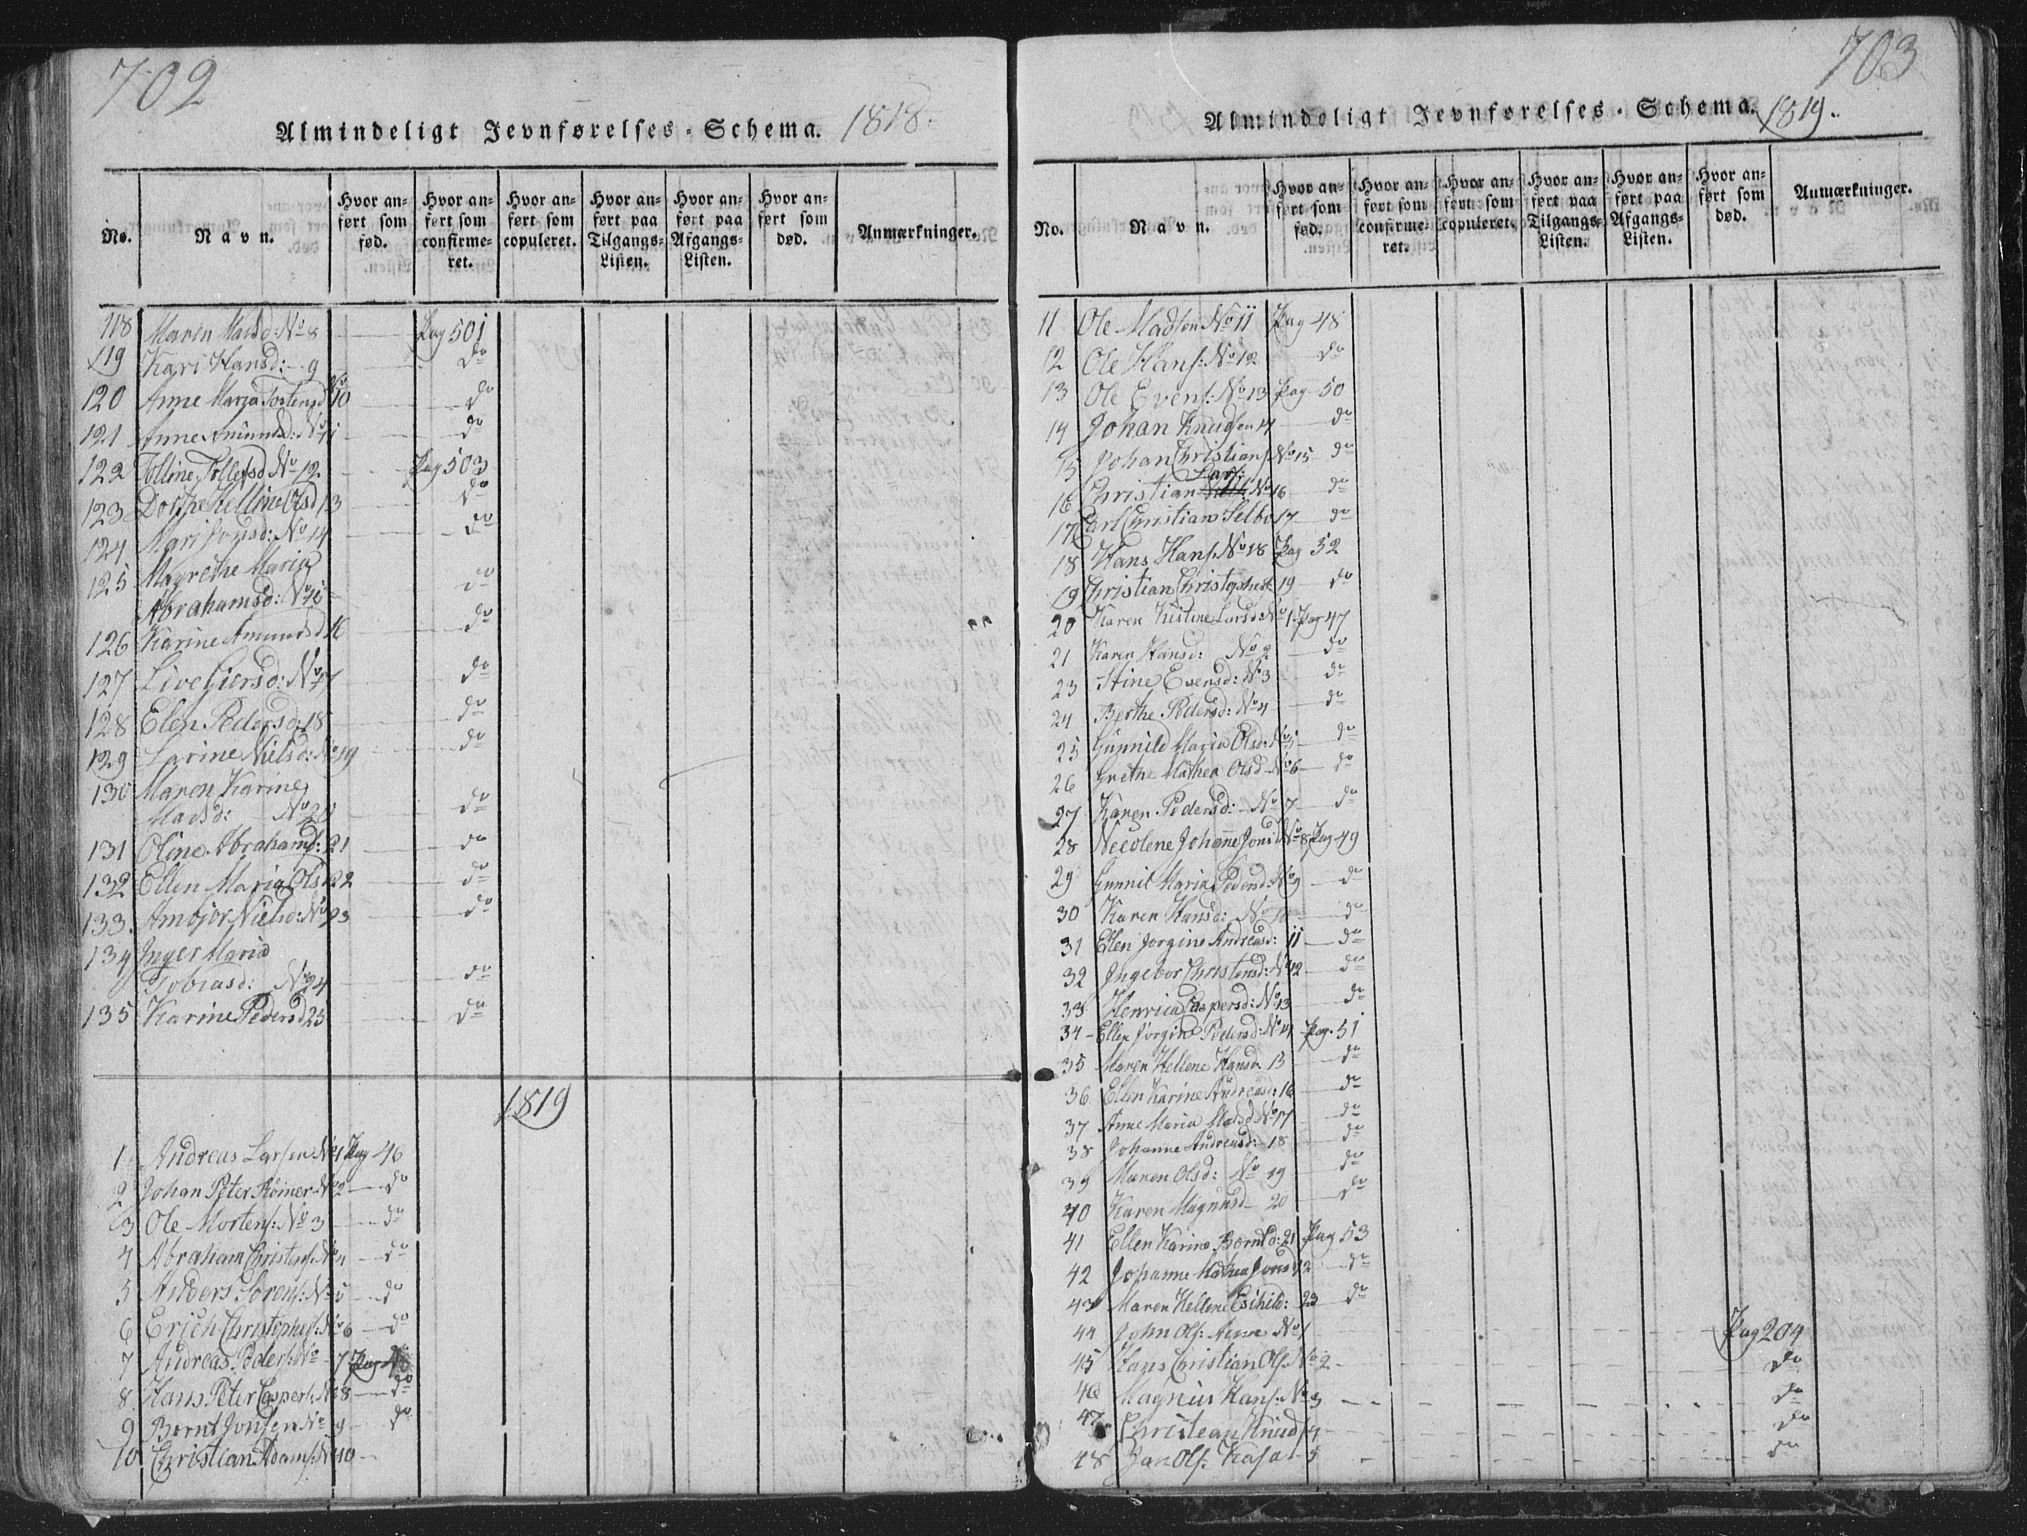 702
Almindeligt Jevnførelses-Schema. 1818.
No.
Navn.
Hvor anført som fød.
Hvor anført som confirmeret.
Hvor anført som copuleret.
Hvor anført paa Tilgangs-Listen.
Hvor anført paa Afgangs-Listen.
Hvor anført som død.
Anmærkninger.
118 Maren Madsd: No 8 Pag 501
119 Kari Hansd: 9 do
120 Anne Maria Tostensd No 10 do
121 Anne Amundsd: No 11 do
122 Tolline Tollefsd No 12 Pag 503
123 Dorthe Helline Olsd 13 do
124 Mari Jonsd: No 14 do
125 Magrethe Maria
Abrahamsd: No 15 do
126 Karine Amundsd 16 do
127 Live Giersd: No 17 do
128 Elen Pedersd: 18 do
129 Larine Nielsd: No 19 do
130 Maren Karine
Madsd: No 20 do
131 Oline Abrahamsd: 21 do
132 Ellen Maria Olsd 22 do
133 Ambjør Nielsd: No 23 do
134 Inger Maria
Tobiasd: No 24 do
135 Karine Pedersd 25 do
1819
1 Andreas Larsen No 1 Pag 46
2 Johan Peter Reimer No 2 do
3 Ole Mortens: No 3 do
4 Abraham Christens: No 4 do
5 Anders Sørens: No 5 do
6 Erich Christophers: No 6 do
7 Andreas Peders: No 7 Pag 48
8 Hans Peter Caspers: No 8 do
9 Bernt Jonsen No 9 do
10 Christian Adams: No 10
703
Almindeligt Jevnførelses-Schema. 1819.
No.
Navn.
Hvor anført som fød.
Hvor anført som confirmeret.
Hvor anført som copuleret.
Hvor anført paa Tilgangs-Listen.
Hvor anført paa Afgangs-Listen.
Hvor anført som død.
Anmærkninger.
11 Ole Madsen No 11 Pag 48
12 Ole Hans: No 12 do
13 Ole Evens: No 13 Pag 50
14 Johan Knudsen 14 do
15 Johan Christians: No 15 do
Lars:
16 Christian No 16 do
17 Carl Christian Selbo 17 do
18 Hans Hans: No 18 Pag 52
19 Christian Christophers: 19 do
20 Karen Kistine Larsd: No 1 Pag 47
21 Karen Hansd: No 2 do
23 Stine Evensd: No 3 do
24 Berthe Pedersd: No 4 do
25 Gunnild Maria Olsd: No 5 do
26 Grethe Mathea Olsd No 6 do
27 Karen Pedersd: No 7 do
28 Necolene Johanne Jonsd No 8 Pag 49
29 Gunnil Maria Pedersd: No 9 do
30 Karen Hansd: No 10 do
31 Ellen Jorgine Andreasd: 11 do
32 Ingebor Christensd: No 12 do
33 Henrica Caspersd: No 13 do
34 Ellen Jorgine Pedersd: No 14 Pag. 51
35 Maren Hellene Hansd 15 do
36 Ellen Karine Andreasd: 16 do
37 Anne Maria Madsd No 17 do
38 Johanne Andreasd: 18 do
39 Maren Olsd: No 19 do
40 Karen Magnusd 20 do
41 Ellen Karine Berntsd: 21 Pag 53
42 Johanne Mathea Jonsd 22 do
43 Maren Hellene Eschild: 23 do
44 John Ols: No 1 Pag 204
45 Hans Christian Ols: No 2 do
46 Magnus Hans: No 3 do
47 Christean Knuds 4 do
48 Jan Ols: Kasa 5 do